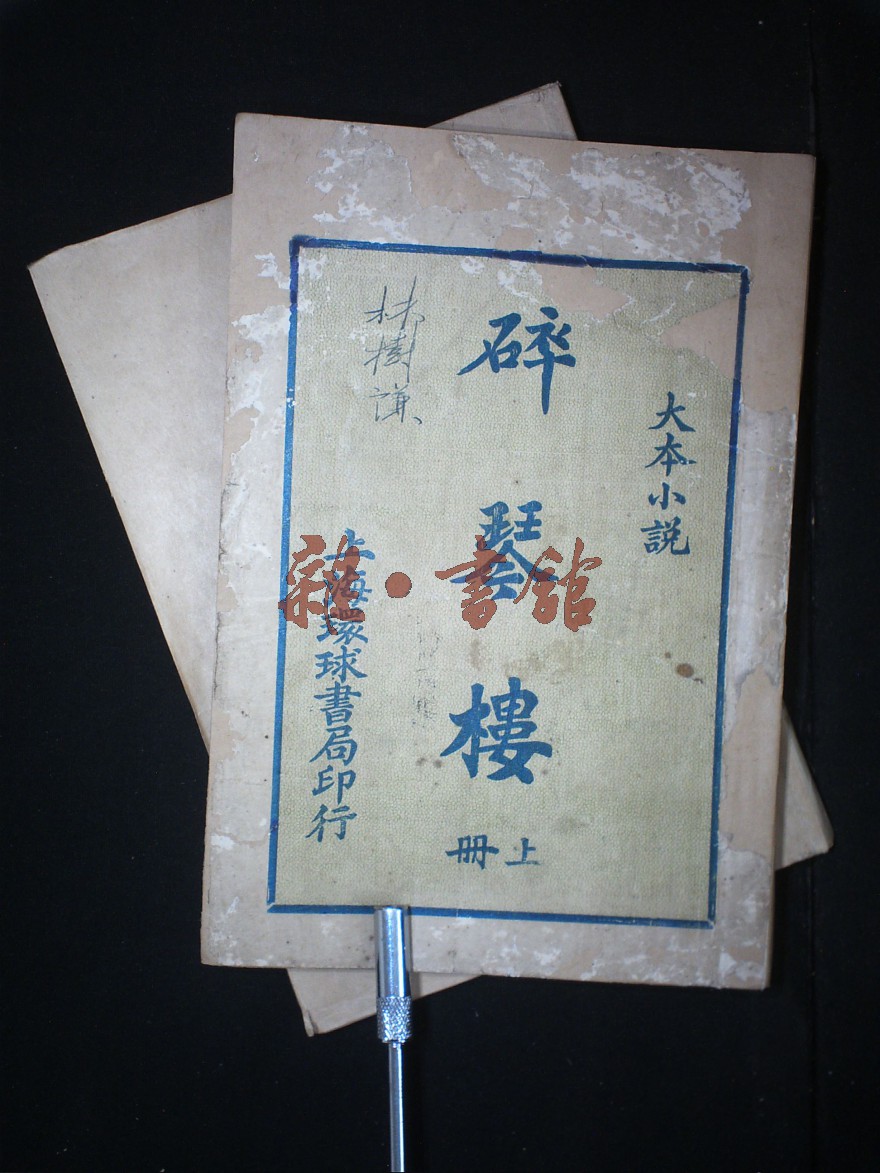 大本小説
碎琴樓
上冊
林樹謙
上海環球書局印行
雜·書館